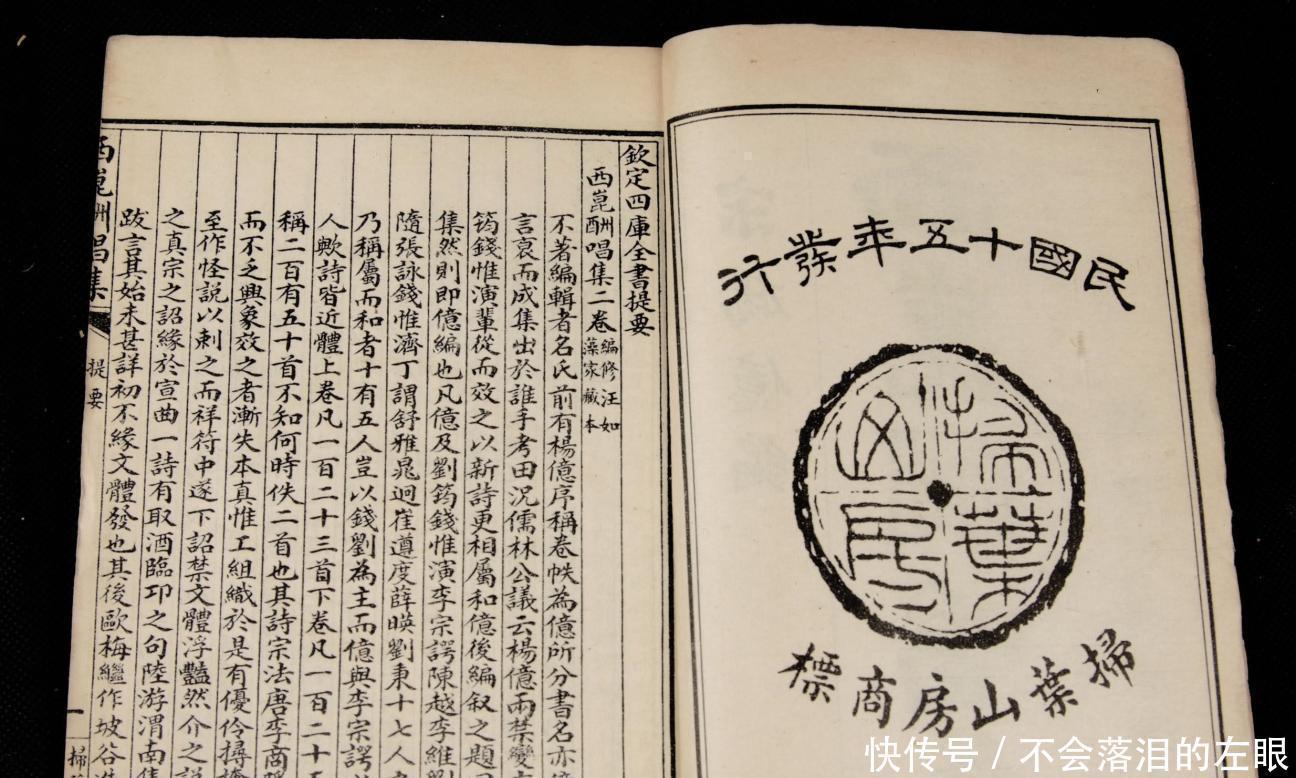 民國十五年發行
掃葉山房
掃葉山房商標
欽定四庫全書提要
西崑酬唱集二卷
編修汪如
藻家藏本
不著編輯者名氏前有楊億序稱卷帙為億所分書名亦億
言裒而成集出於誰手考田況儒林公議云楊億兩禁變文
筠錢惟演輩從而效之以新詩更相屬和億後編叙之題
集然則即億編也凡億及劉筠錢惟演李宗諤陳越李維劉
隨張詠錢惟濟丁謂舒雅晁迥崔遵度薛映劉秉十七人
乃稱屬而和者十有五人豈以錢劉為主而億與李宗諤
人歟詩皆近體上卷凡一百二十三首下卷凡一百二十五
稱二百有五十首不知何時佚二首也其詩宗法唐李商隱
而不乏興象效之者漸失本真惟工組織於是有優伶撏撦
至作怪說以刺之而祥符中遂下詔禁文體浮豔然介之說
之真宗之詔緣於宣曲一詩有取酒臨邛之句陸游渭南集
跋言其始末甚詳初不緣文體發也其後歐梅繼作坡谷迭
西崑酬唱集
提要
一
掃
快传号 / 不会落泪的左眼